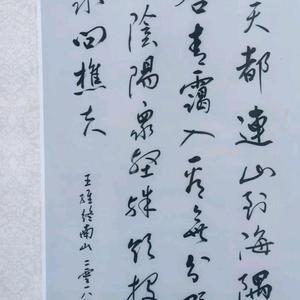 天都連山到海隅
合青靄入看無分野
陰陽眾壑殊欲投
水問樵夫
王維終南山二零一八